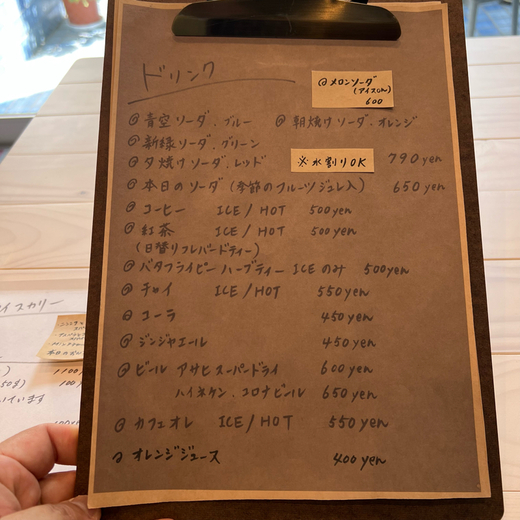 ドリンク
@メロンソーダ
(アイスなし)
600
@青空ソーダ.ブルー @朝焼けソーダ.オレンジ
@新緑ソーダ.グリーン
@夕焼けソーダ.レッド ※水割りOK 790yen
@本日のソーダ(季節のフルーツジュレ入) 650yen
@コーヒー ICE/HOT 500yen
@紅茶 ICE/HOT 500yen
(日替りフレバードティー)
@バタフライピーハーブティー ICEのみ 500yen
@チャイ ICE/HOT 550yen
@コーラ 450yen
@ジンジャエール 450yen
@ビール アサヒスーパードライ 600yen
ハイネケン.コロナビール 650yen
@カフェオレ ICE/HOT 550yen
@オレンジジュース 400yen
イスカリー
1100
50g) 100
います